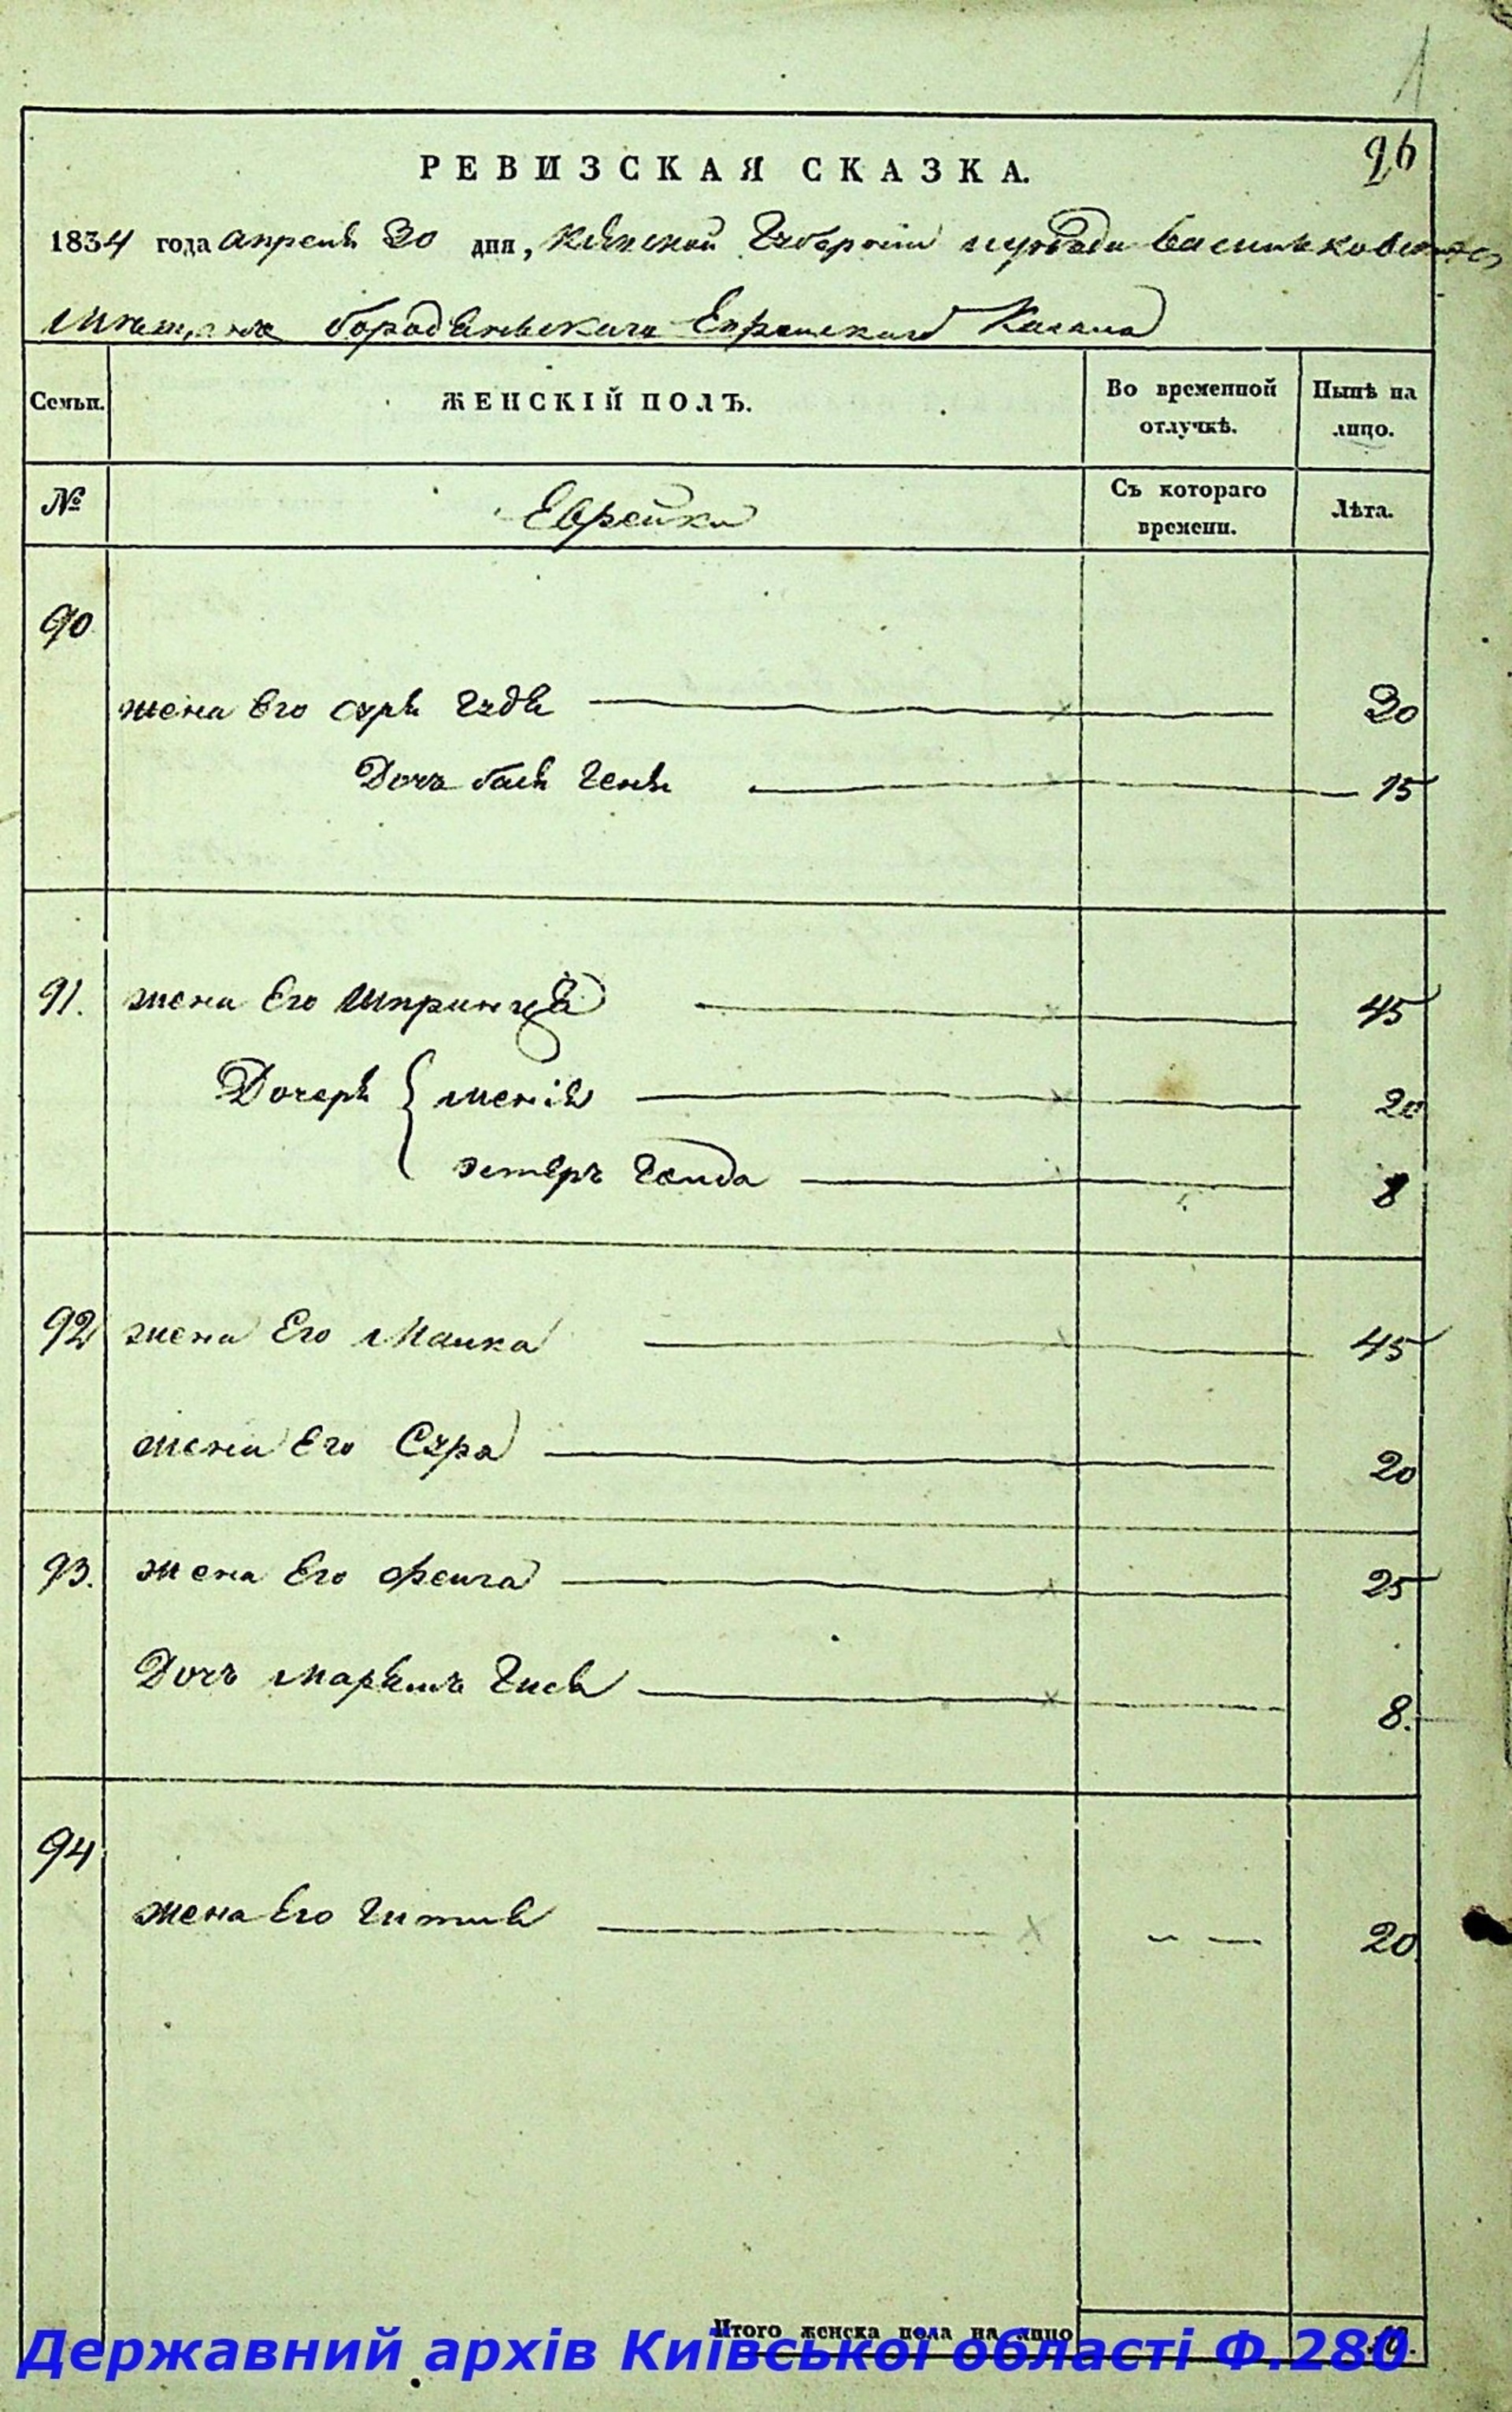 26
РЕВИЗСКАЯ СКАЗКА.
1834 года апреля 30 дня, Киевской Губернии
Еврейского Кагала
Семьи.
ЖЕНСКІЙ ПОЛЪ.
Во временной отлучкѣ.
Нынѣ на лицо.
№
Еврейки
Съ котораго времени.
Лѣта.
90
жена Его Сура 30
Дочь 15
91. жена Его Шпринца 45
Дочери 20
Эстеръ 8
92 жена Его Малка 45
жена Его Сура 20
93. жена Его Фейга 25
Дочь 8.
94
жена Его 20
Итого женска пола на лицо 10.
Державний архів Київської області Ф.280